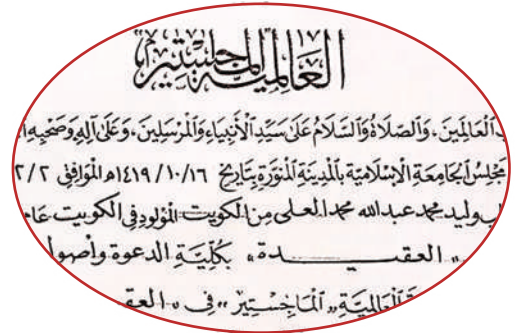 العالمية الماجستير
العَالَمِينَ، وَالصَّلَاةُ وَالسَّلَامُ عَلَىٰ سَيِّدِ الْأَنْبِيَاءِ وَالْمُرْسَلِينَ، وَعَلَىٰ آلِهِ وَصَحْبِهِ
مَجْلِسُ الجَامِعَةِ الإِسْلَامِيَّةِ بِالْمَدِينَةِ الْمُنَوَّرَةِ بِتَارِيخِ ١٤١٩/١٠/١٦هـ الْمُوَافِقِ ٢/٢
وليد محمد عبدالله محمد العلى مِنَ الكويت الْمَوْلُودِ فِى الكويت
«العقيدة» بِكُلِّيَّةِ الدعوة وأصول
العَالَمِيَّةِ «الْمَاجِسْتِيرْ» فِى «